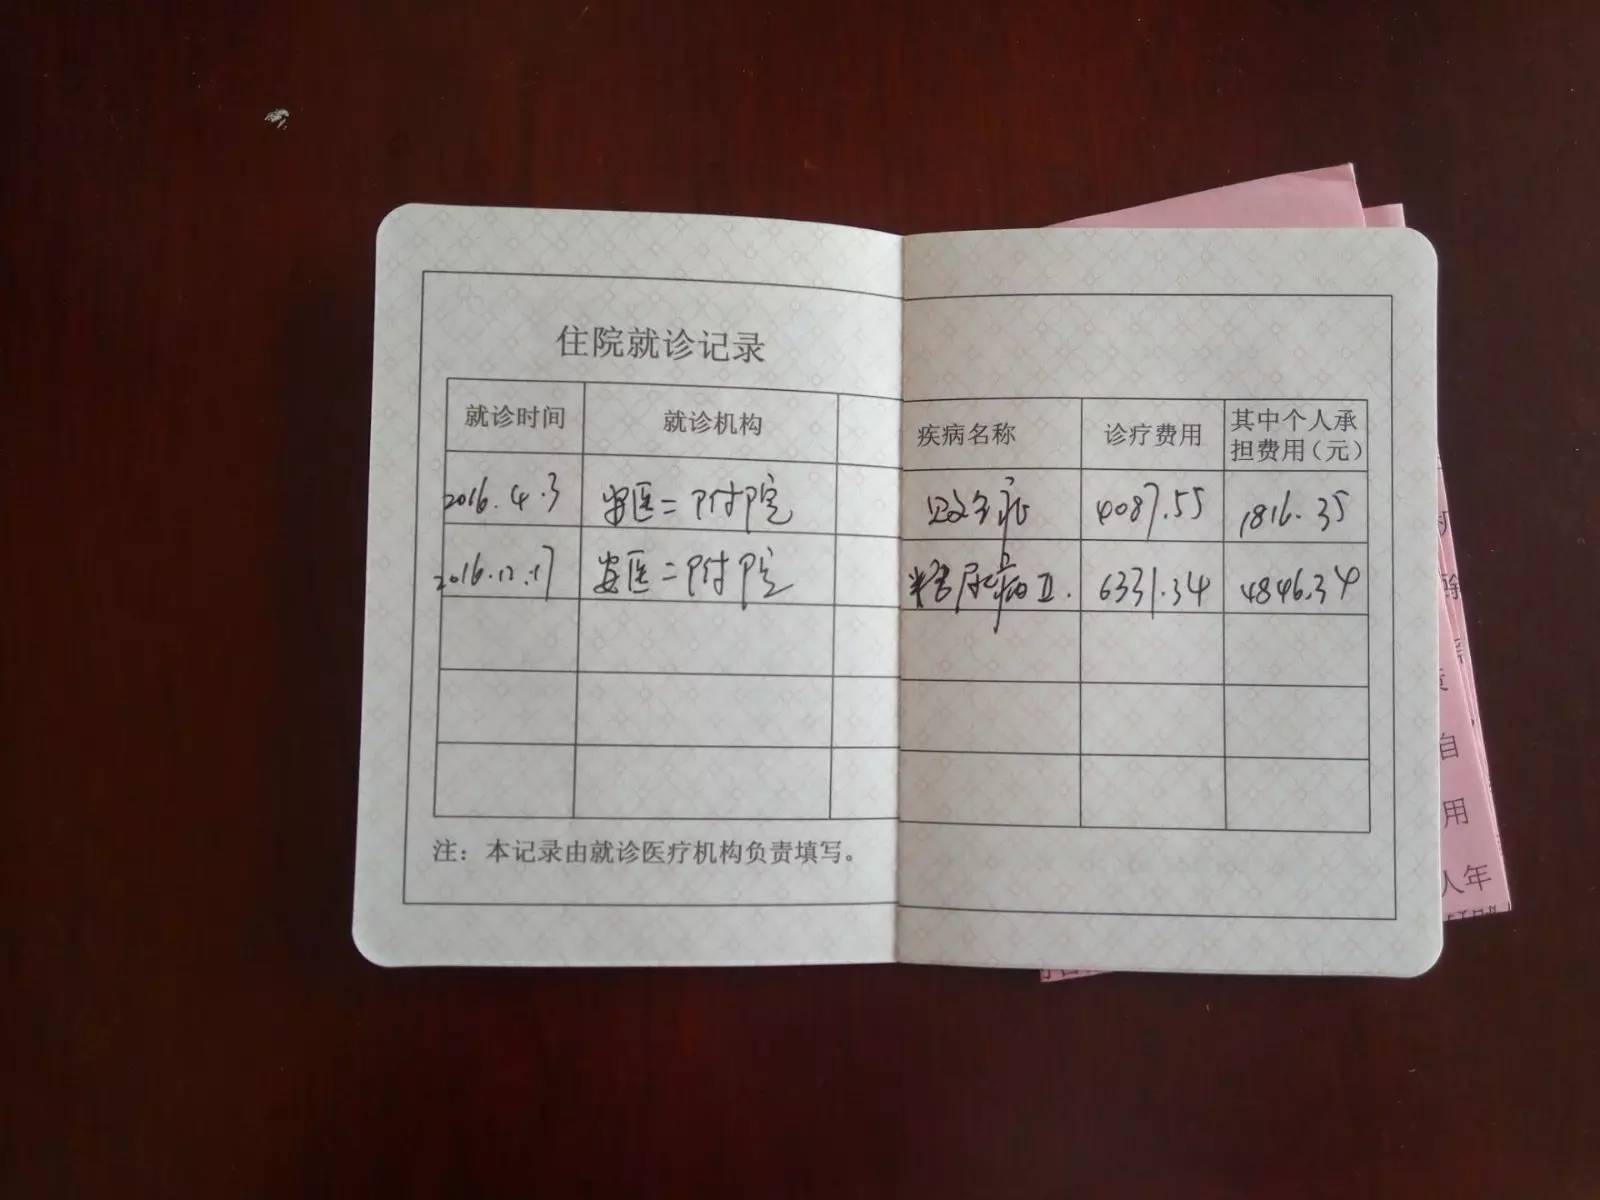 住院就诊记录
就诊时间 就诊机构 疾病名称 诊疗费用 其中个人承担费用(元)
2016.4.3 安医二附院 败全症 4087.55 1816.35
2016.12.17 安医二附院 糖尿病II. 6331.34 4846.34
注：本记录由就诊医疗机构负责填写。
自
用
人年